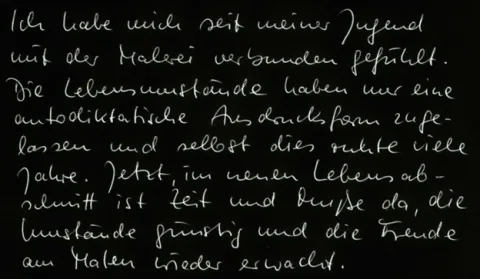 Ich habe mich seit meiner Jugend
mit der Malerei verbunden gefühlt.
Die Lebensumstände haben nur eine
autodiktatische Ausdrucksform zuge-
lassen und selbst dies ruhte viele
Jahre. Jetzt, im neuen Lebensab-
schnitt ist Zeit und Muße da, die
Umstände günstig und die Freude
am Malen wieder erwacht.